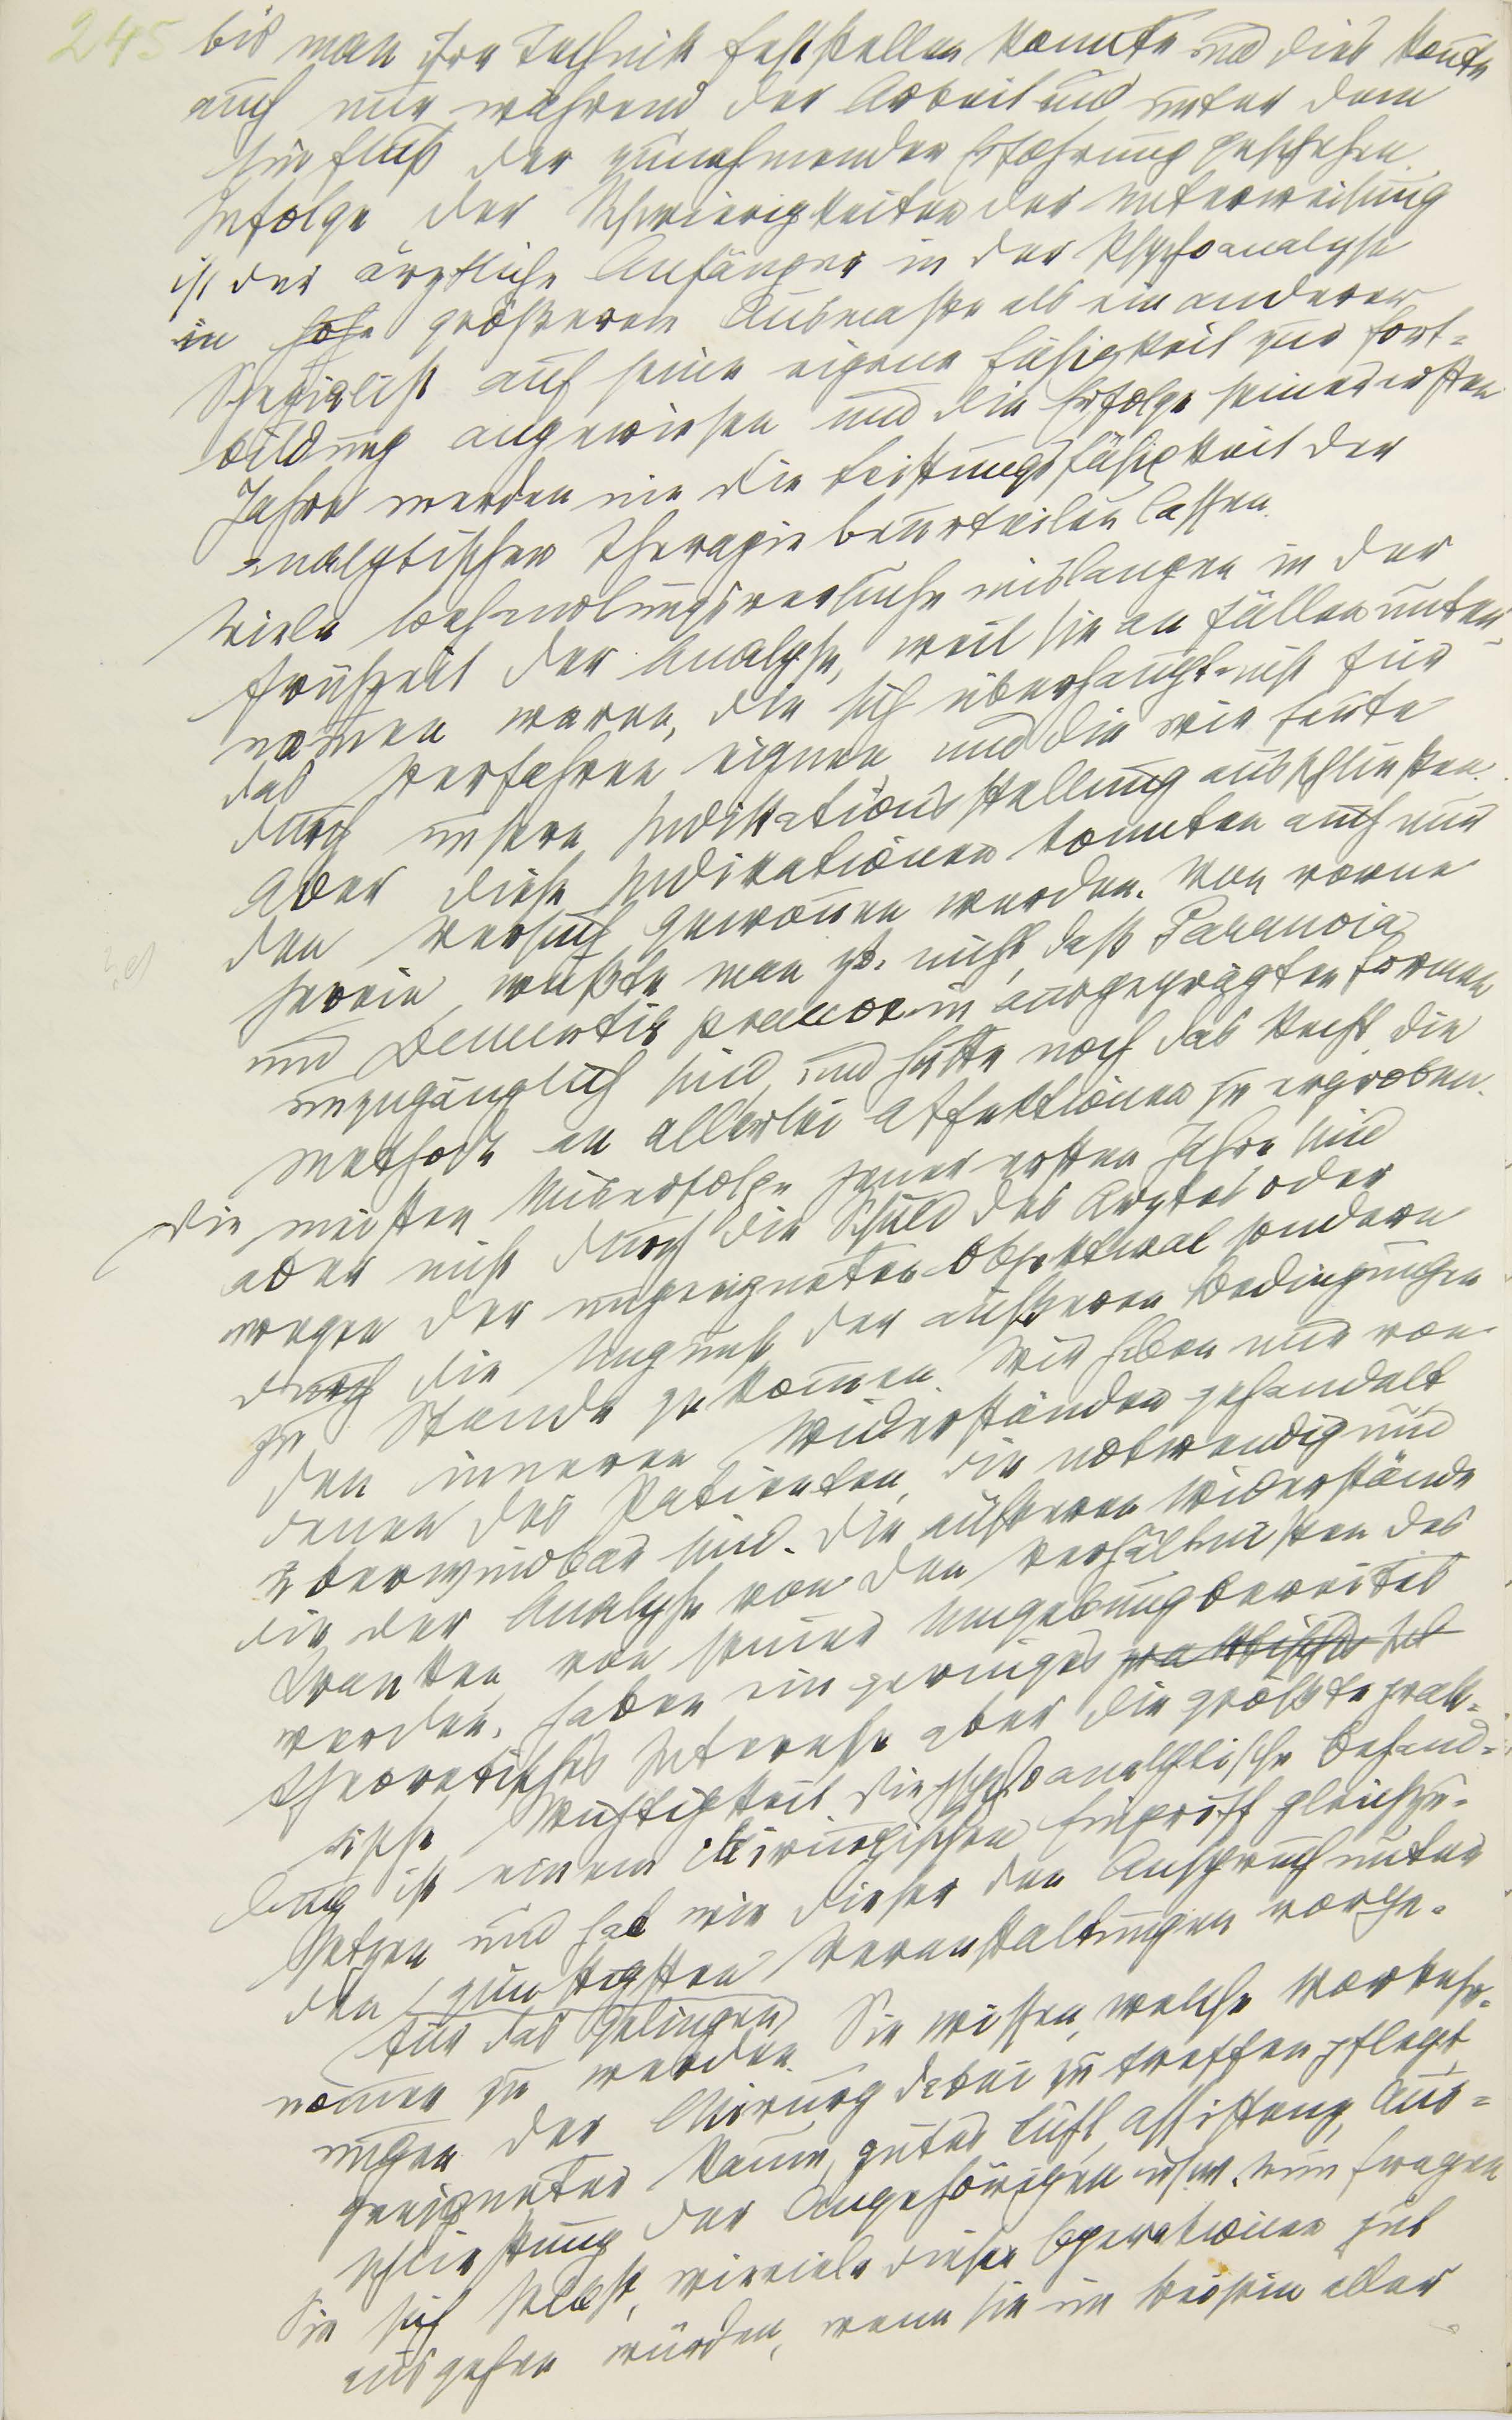 245
bis man ihre Technik feststellen konnte und dies konnte
auch nur während der Arbeit und unter dem
Einfluß der zunehmenden Erfahrung geschehen.
Infolge der Schwierigkeiten der Unterweisung
ist der ärztliche Anfänger in der Psychoanalyse
in hohe größerem Ausmaße als ein anderer
Spezialist auf seine eigene Fähigkeit zur Fort-
bildung angewiesen und die Erfolge seiner ersten
Jahre werden nie die Leistungsfähigkeit der
analytischen Therapie beurteilen lassen.
Viele Behandlungsversuche mislangen in der
Frühzeit der Analyse, weil sie an Fällen unter-
nommen waren, die sich überhaupt nicht für
das Verfahren eignen und die wir heute
durch unsere Indikationsstellung ausschließen.
Aber diese Indikationen konnten auch nur
den Versuch gewonnen werden. Von vorne
herein wußte man zb. nicht, daß Paranoia
und Dementia praecox in ausgeprägten Formen
unzugänglich sind, und hatte noch das Recht die
Methode an allerlei Affektionen zu erproben.
Die meisten Miserfolge jener ersten Jahre sind
aber nicht durch die Schuld des Arztes oder
wegen der ungeeigneten Objektwal sondern
durch die Ungunst der äußeren Bedingungen
zu Stande gekommen. Wir haben nur von
den inneren Widerständen gehandelt,
denen des Patienten, die notwendig und
überwindbar sind. Die äußeren Widerstände
die der Analyse von den Verhältnissen des
Kranken, von seiner Umgebung bereitet
werden, haben ein geringes praktisches Int
theoretisches Interesse aber die größte prak-
tische Wichtigkeit. Die psychoanalytische Behand-
lung ist einem chirurgischen Eingriff gleichzu-
setzen und hat wie dieser den Anspruch unter
den günstigsten Veranstaltungen vorge-
für das Gelingen
nommen zu werden. Sie wissen, welche Vorkehr-
ungen der Chirurg dabei zu treffen pflegt,
geeigneter Raum, gutes Luft, Assistenz, Aus-
schließung der Angehörigen usw. Nun fragen
Sie sich selbst, wieviele dieser Operationen gut
ausgehen würden, wenn sie im Beisein aller